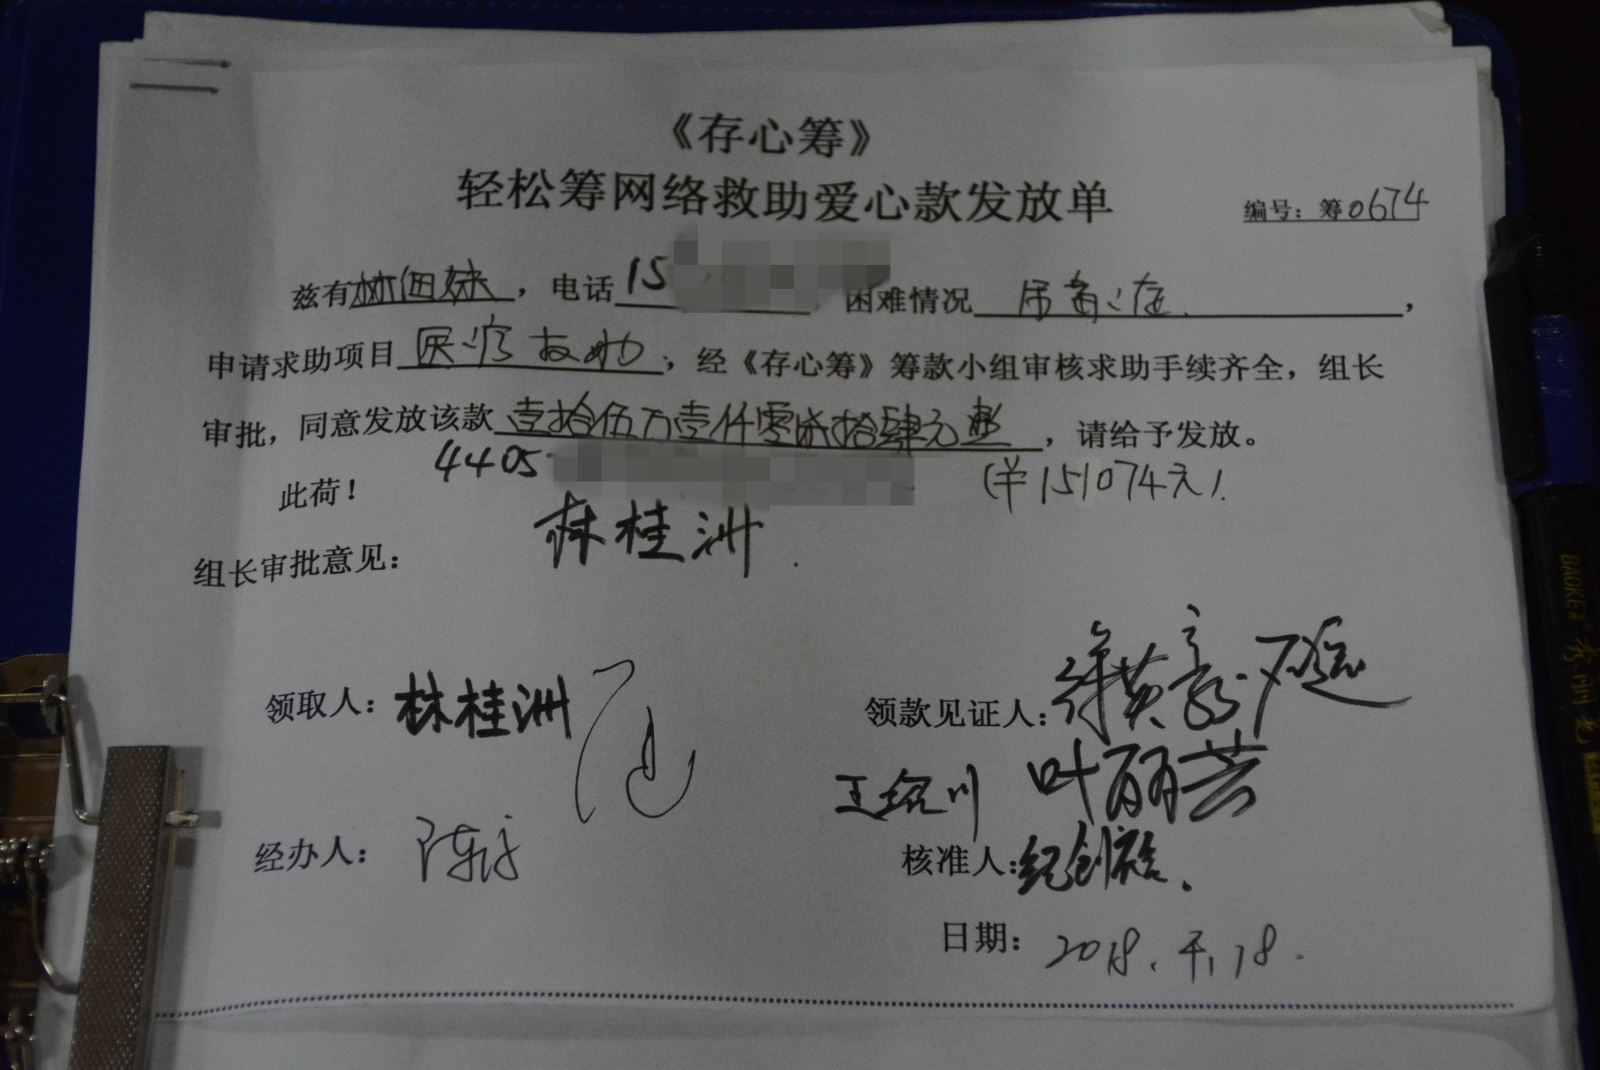 《存心筹》
轻松筹网络救助爱心款发放单
编号：筹0674
兹有林佃妹，电话15 困难情况尿毒症，
申请求助项目医疗救助；经《存心筹》筹款小组审核求助手续齐全，组长
审批，同意发放该款壹拾伍万壹仟零柒拾肆元整，请给予发放。
4405 (￥151074元)
此荷！
林桂洲
组长审批意见：
领取人：林桂洲 领款见证人：
叶丽芸
经办人： 核准人：
日期：2018. 18.
BAOKE